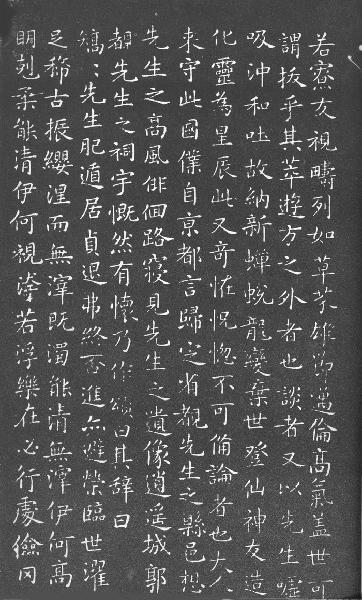 若寮友視疇列如草芥雄節邁倫高氣蓋世可
謂拔乎其萃遊方之外者也談者又以先生噓
吸沖和吐故納新蟬蛻龍變棄世登仙神友造
化靈為星辰此又奇怪怳惚不可備論者也大人
来守此國僕自京都言歸定省覩先生之縣邑想
先生之高風徘徊路寢見先生之遺像逍遥城郭
覩先生之祠宇慨然有懷乃作頌曰其辭曰
矯〻先生肥遁居貞退弗終否進亦避榮臨世濯
足希古振纓涅而無滓既濁能清無滓伊何高
明剋柔能清伊何視汙若浮樂在必行處儉罔